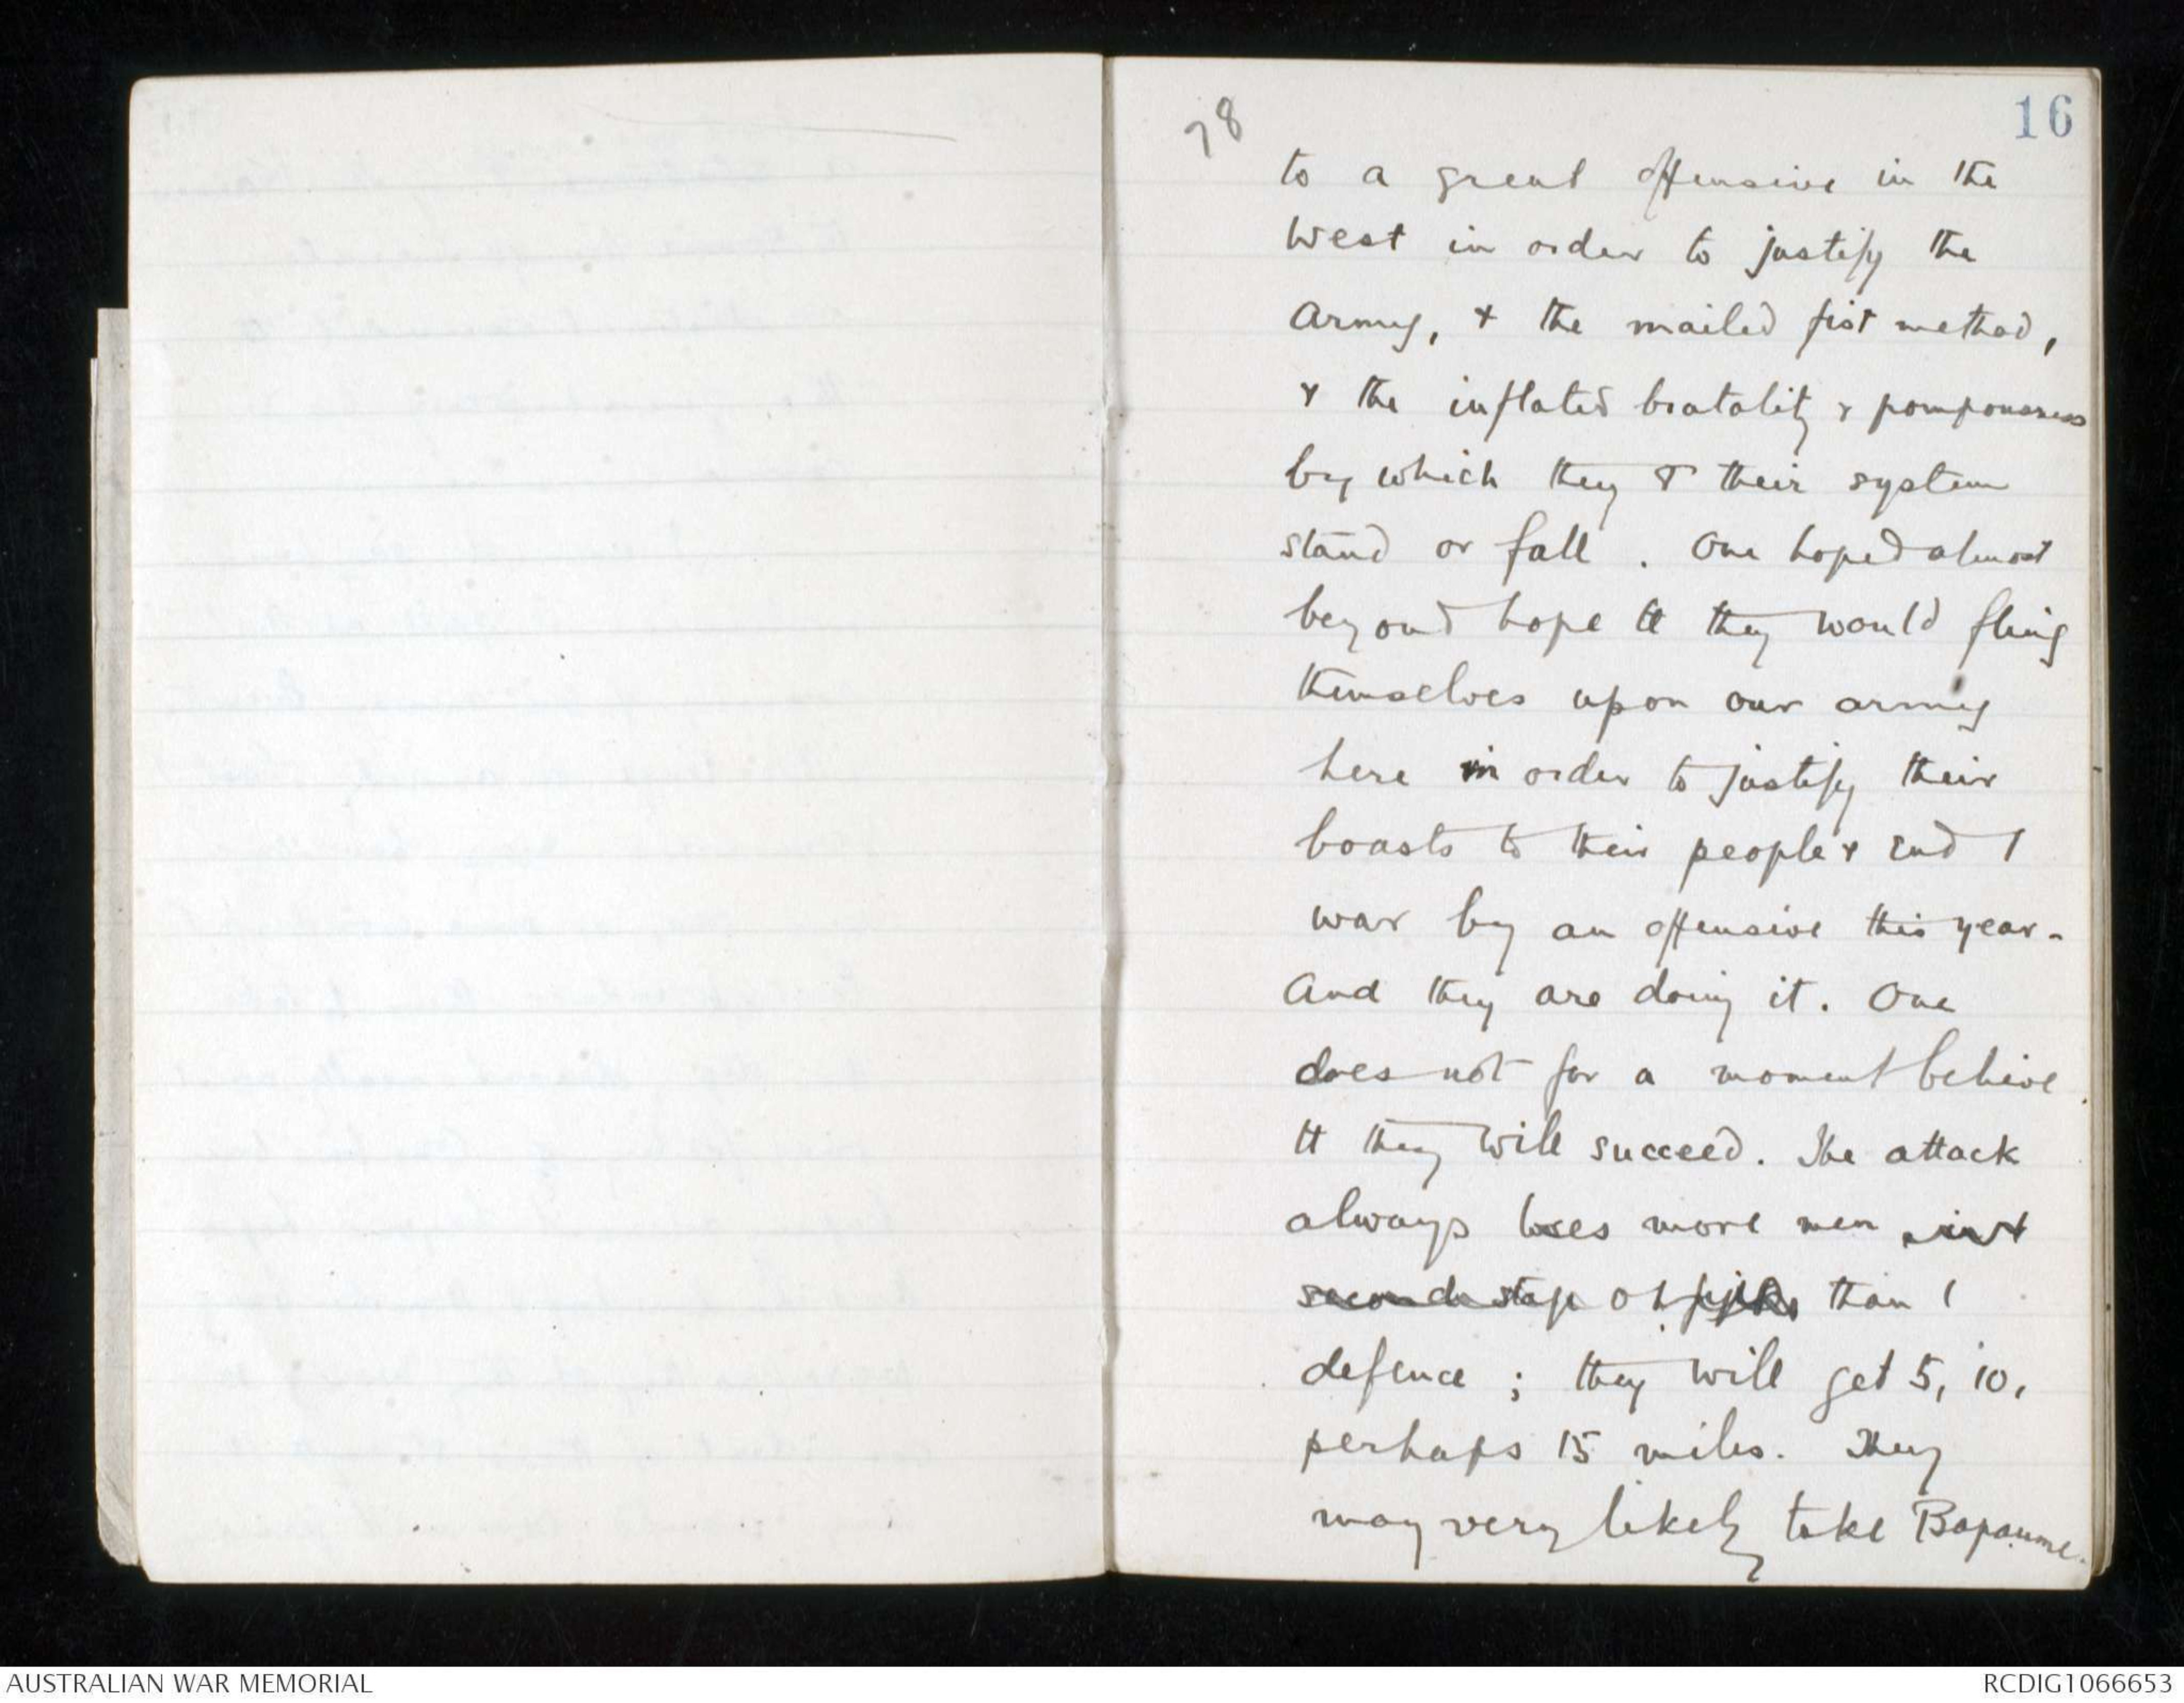 78
16
to a great offensive in the
West in order to justify the
Army, + the mailed fist method,
& the inflated brutality & pompousness
by which they & their system
stand or fall. One hoped almost
beyond hope tt they would fling
themselves upon our army
here in order to justify their
boasts to their people & end /
war by an offensive this year -
And they are doing it. One
does not for a moment believe
tt they will succeed. The attack
always loses more men
second stage of than /
defence; they will get 5, 10,
perhaps 15 miles. They
may very likely take Bapaume.
AUSTRALIAN WAR MEMORIAL
RCDIG1066653